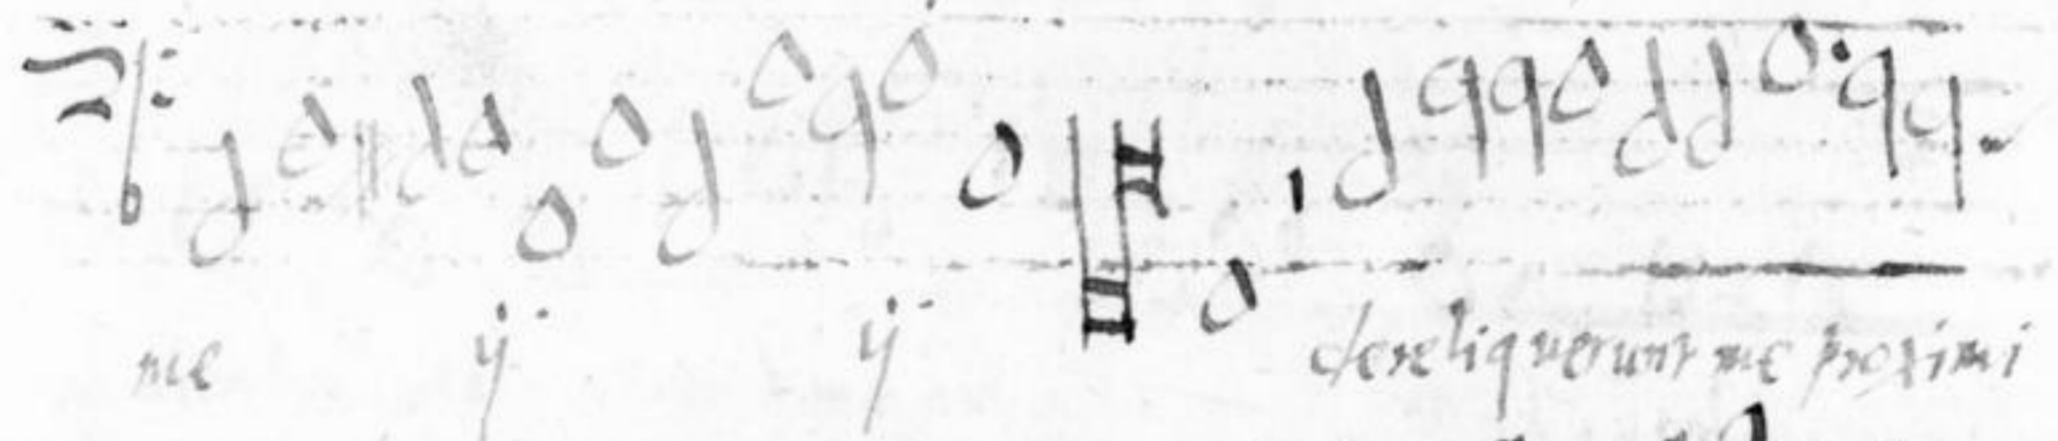 me ij. ij. dereliquerunt me proximi